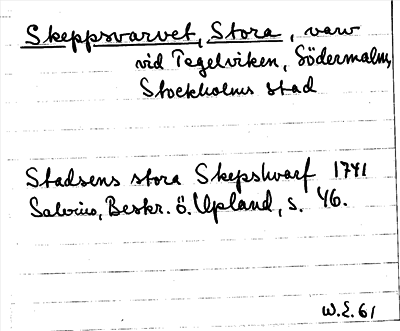 Skeppsvarvet, Stora, varv
vid Tegelviken, Södermalm,
Stockholms stad
Stadsens stora Skepshvarf 1741
Salvius, Beskr. ö. Upland, s. 46.
W.E. 61